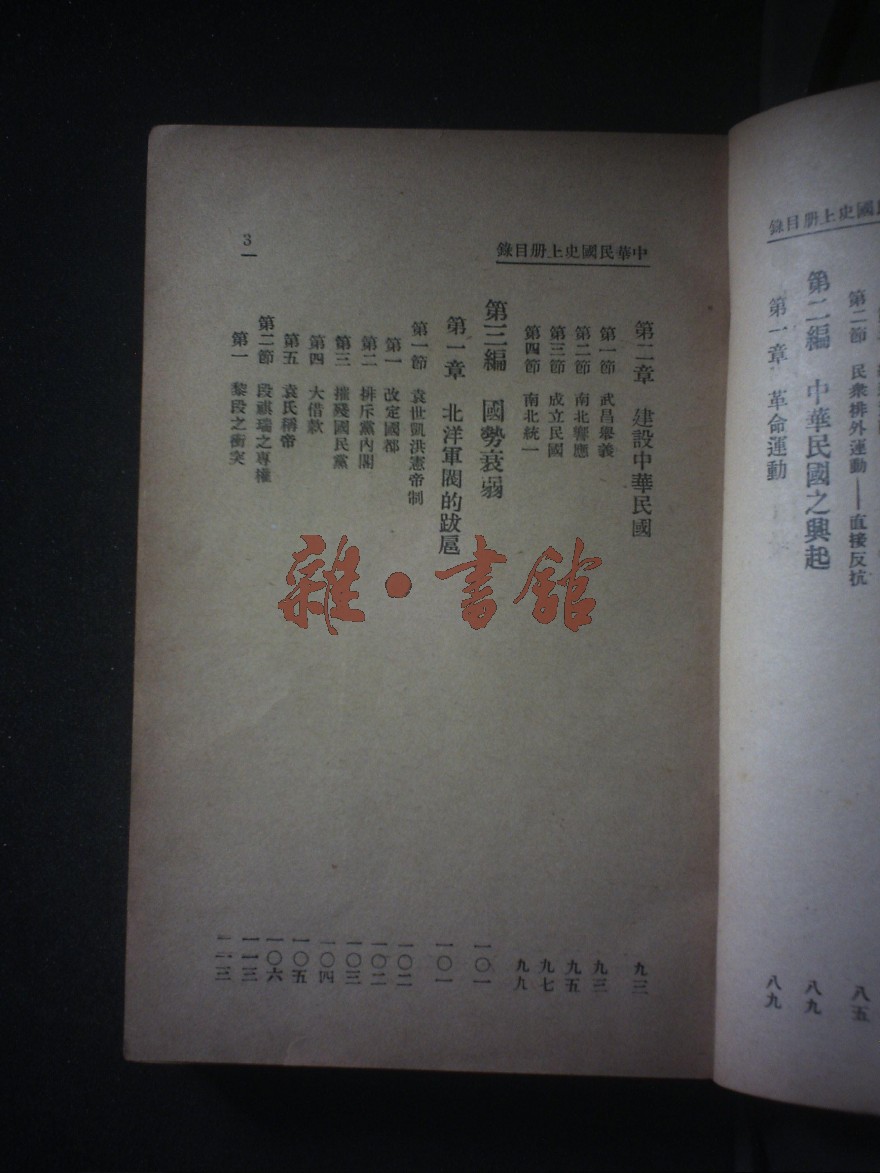 國史上册目錄
第二節　民衆排外運動——直接反抗　八五
第二編　中華民國之興起　八九
第一章　革命運動　八九
中華民國史上册目錄
第二章　建設中華民國　九三
第一節　武昌舉義　九三
第二節　南北響應　九五
第三節　成立民國　九七
第四節　南北統一　九九
第三編　國勢衰弱　一〇一
第一章　北洋軍閥的跋扈　一〇一
第一節　袁世凱洪憲帝制　一〇二
第一　改定國都　一〇二
第二　排斥黨內閣　一〇三
第三　摧殘國民黨　一〇四
第四　大借款　一〇五
第五　袁氏稱帝　一〇六
第二節　段祺瑞之專權　一一三
第一　黎段之衝突　一一三
3
雜·書館